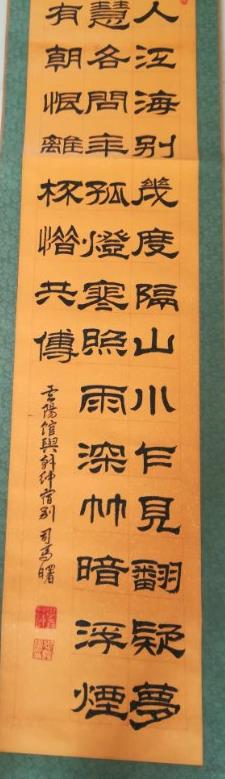 人江海別幾度隔山川乍見翻疑夢
悲各問年孤燈寒照雨深竹暗浮煙
有朝恨離杯惜共傳
雲陽館與韓紳宿別 司馬曙